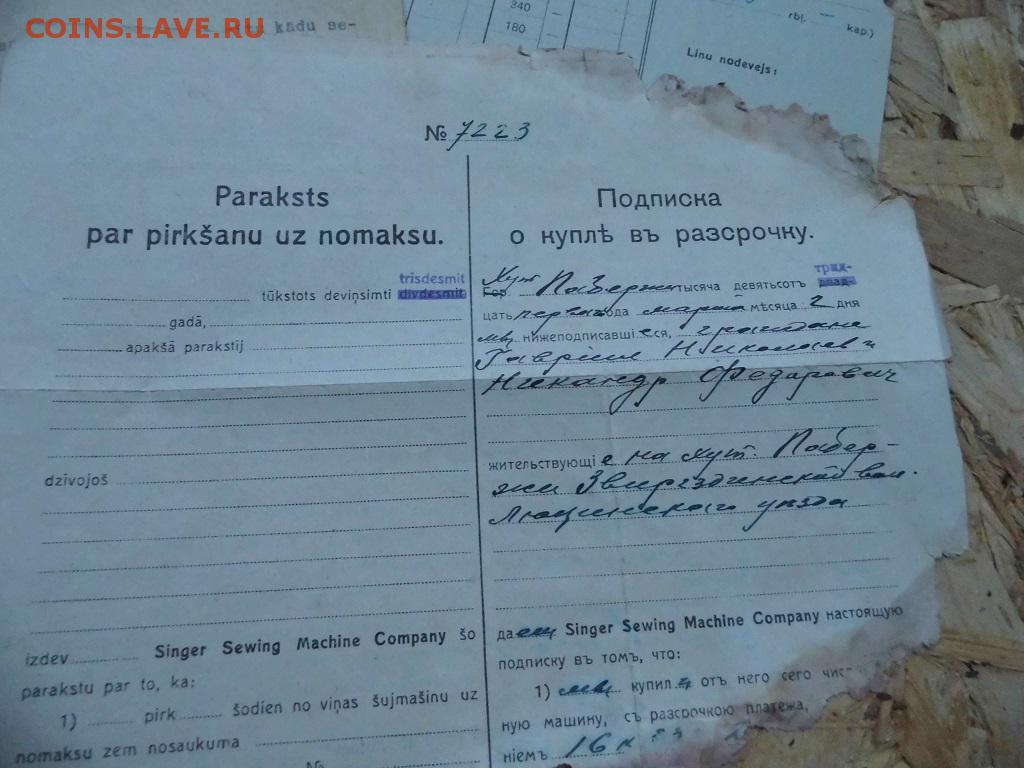 COINS.LAVE.RU
kādu se-
340
180
rbļ.
kap.)
Linu nodevejs:
№ 7223
Paraksts
par pirkšanu uz nomaksu.
trīsdesmit
tūkstots deviņsimti divdesmit
gadā,
apakšā parakstij
dzīvojoš
izdev Singer Sewing Machine Company šo
parakstu par to, ka:
1) pirk šodien no viņas šujmašinu uz
nomaksu zem nosaukuma
№
Подписка
о куплѣ въ разсрочку.
тридц-
Хут. Гор. тысяча девятьсотъ двад-
цать перваго года марта мѣсяца 2 дня
мы нижеподписавшіеся, граждане
Гавріил Николаев и
Никандр Федарович
жительствующіе на хут. Пабер-
жи Звиргздинской вол.
Люцинскаго уѣзда
даем Singer Sewing Machine Company настоящую
подписку въ томъ, что:
1) мы купили отъ него сего чис
ную машину, съ разсрочкою платежа,
ніемъ 16к